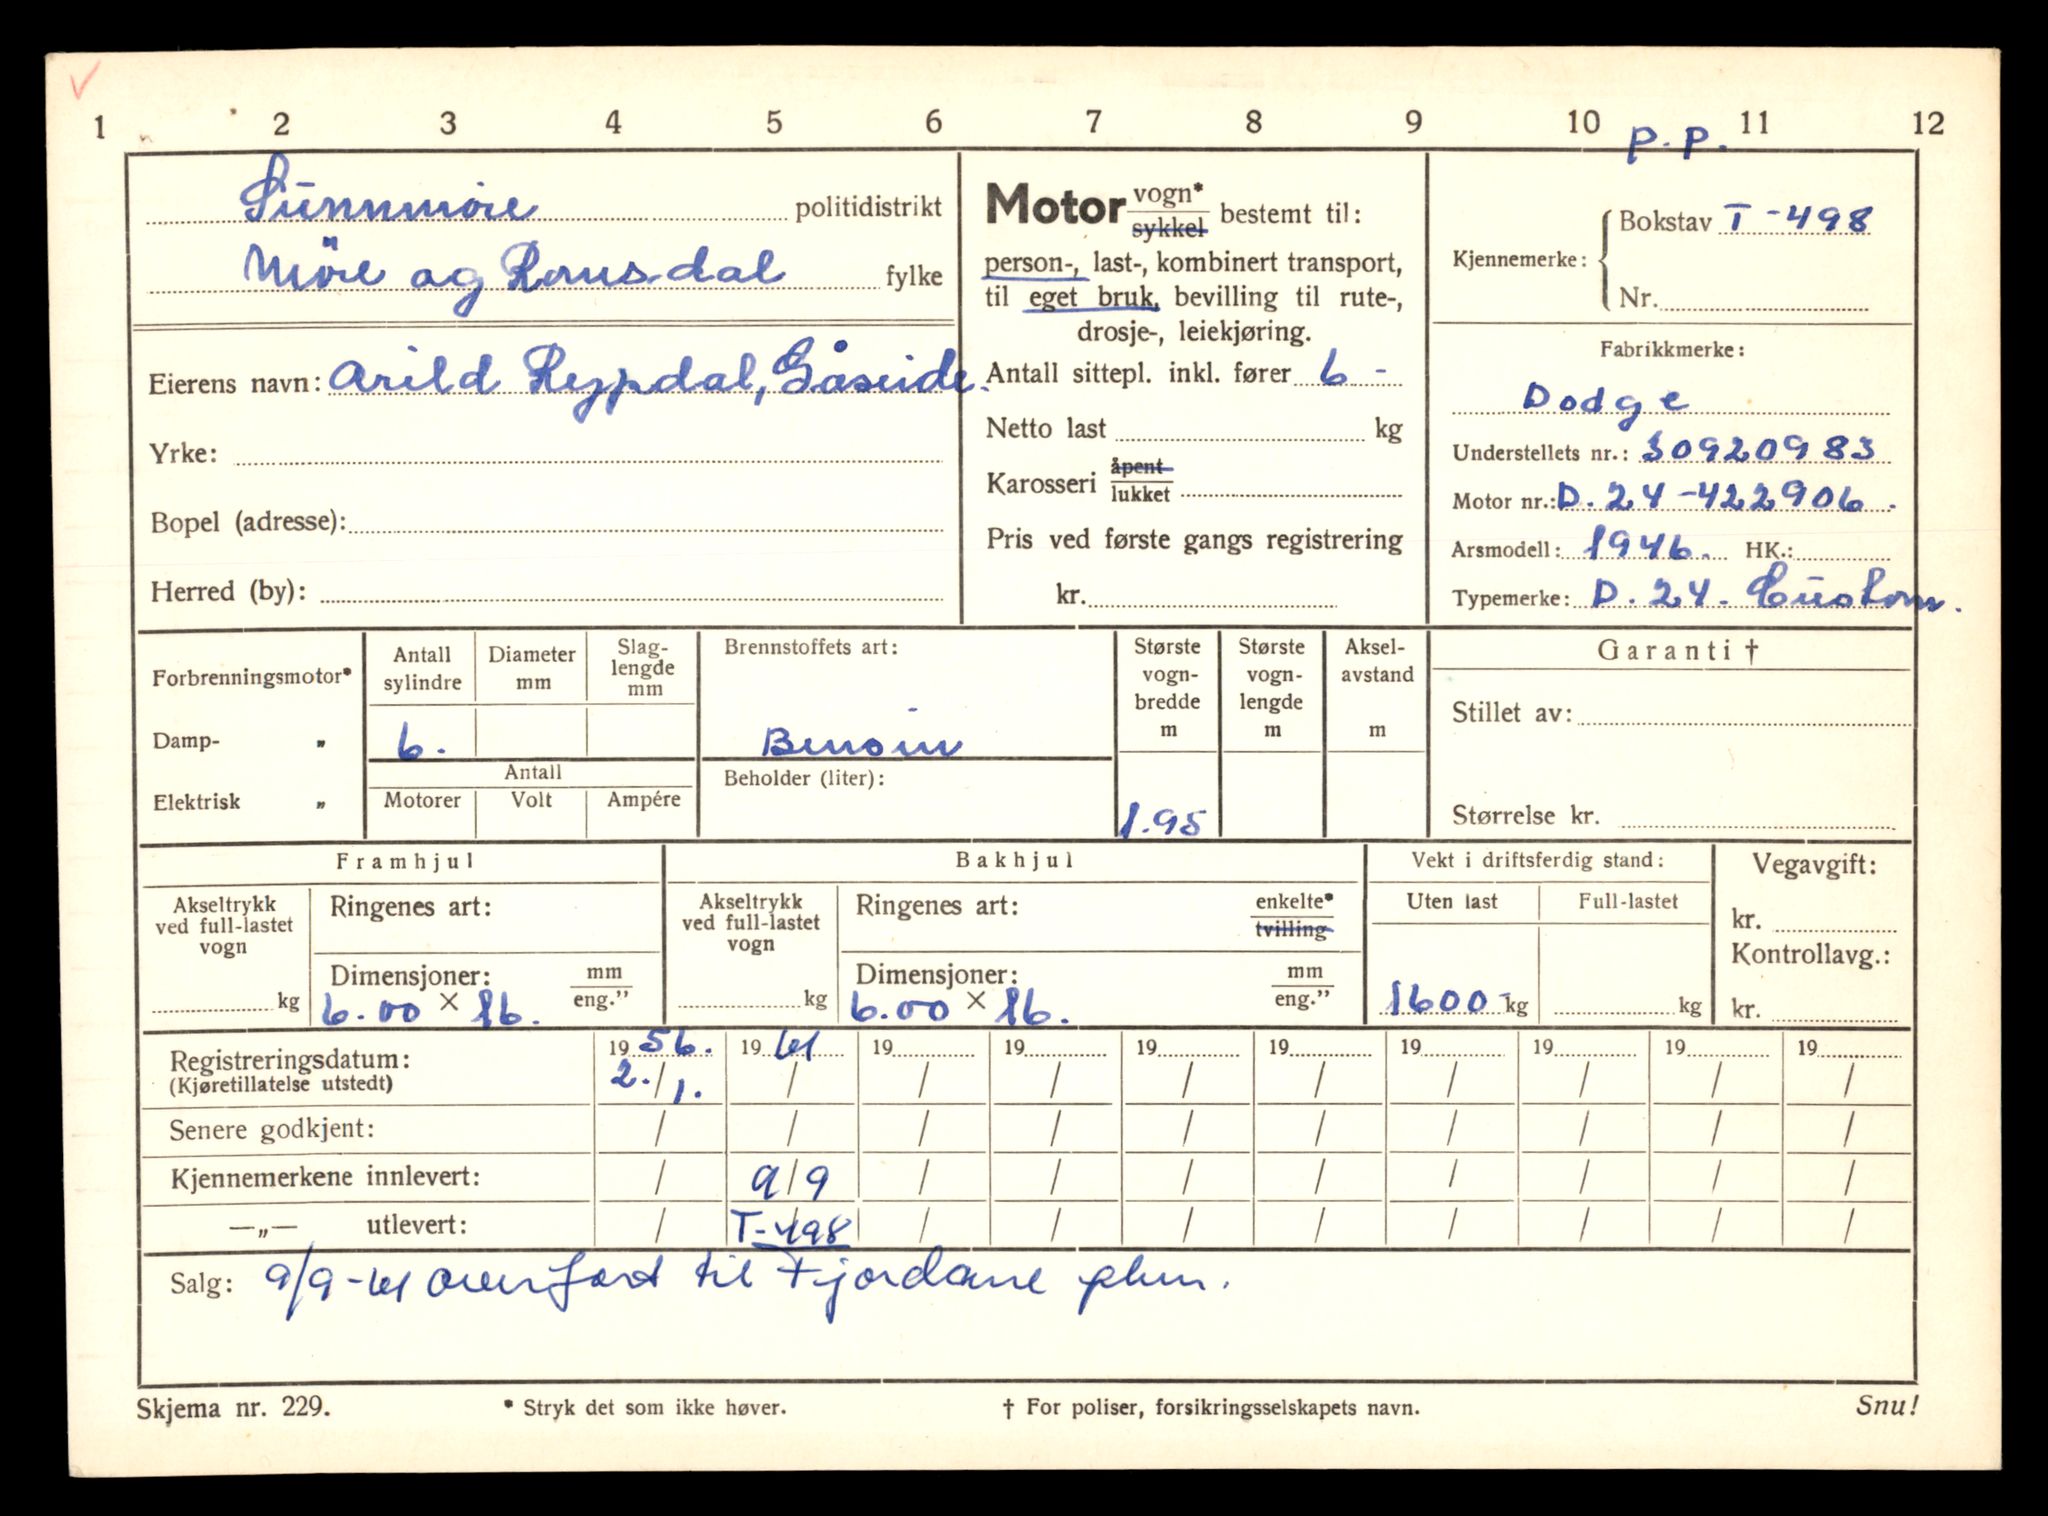 1 2 3 4 5 6 7 8 9 10 11 12
P.P.
Sunnmøre politidistrikt
Møre og Romsdal fylke
Eierens navn: Arild Rypdal, Gåseide.
Yrke:
Bopel (adresse):
Herred (by):
Motor vogn*
sykkel bestemt til:
person-, last-, kombinert transport,
til eget bruk, bevilling til rute-,
drosje-, leiekjøring.
Antall sittepl. inkl. fører 6 -
Netto last kg
Karosseri åpent
lukket
Pris ved første gangs registrering
kr.
Kjennemerke: Bokstav T-498
Nr.
Fabrikkmerke:
Dodge
Understellets nr.: 30920983
Motor nr.: D.24-422906.
Arsmodell: 1946. HK.:
Typemerke: D.24. Custom.
Forbrenningsmotor*
Damp- „
Elektrisk „
Antall sylindre
Diameter mm
Slag-lengde mm
6.
Antall
Motorer Volt Ampére
Brennstoffets art:
Bensin
Beholder (liter):
Største vogn-bredde m
1.95
Største vogn-lengde m
Aksel-avstand m
Garanti †
Stillet av:
Størrelse kr.
Framhjul
Akseltrykk ved full-lastet vogn
kg
Ringenes art:
Dimensjoner: mm
eng."
6.00 × 16.
Bakhjul
Akseltrykk ved full-lastet vogn
kg
Ringenes art: enkelte*
tvilling
Dimensjoner: mm
eng."
6.00 × 16.
Vekt i driftsferdig stand:
Uten last Full-lastet
1600- kg kg
Vegavgift:
kr.
Kontrollavg.:
kr.
Registreringsdatum: 19 56. 19 61 19 19 19 19 19 19 19 19
(Kjøretillatelse utstedt) 2./1. / / / / / / / / /
Senere godkjent: / / / / / / / / / /
Kjennemerkene innlevert: / 9/9 / / / / / / / /
—„— utlevert: / T-498 / / / / / / / /
Salg: 9/9-61 overført til Fjordane pkm.
Skjema nr. 229. * Stryk det som ikke høver. † For poliser, forsikringsselskapets navn. Snu!